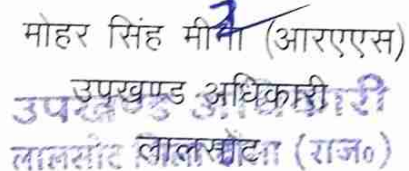 मोहर सिंह मीना (आरएएस)
उपखण्ड अधिकारी
उपखण्ड अधिकारी
लालसोट
लालसोट जिला दौसा (राज०)